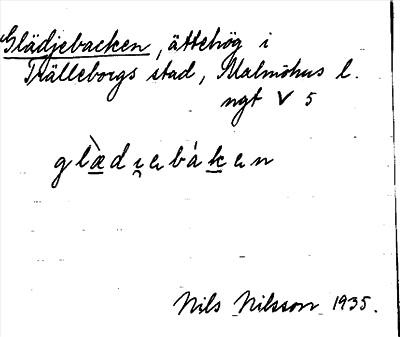 Glädjebacken, ättehög i
Trälleborgs stad, Malmöhus l.
ngt V 5
glæ̀di̯ɐbákɐn
Nils Nilsson 1935.